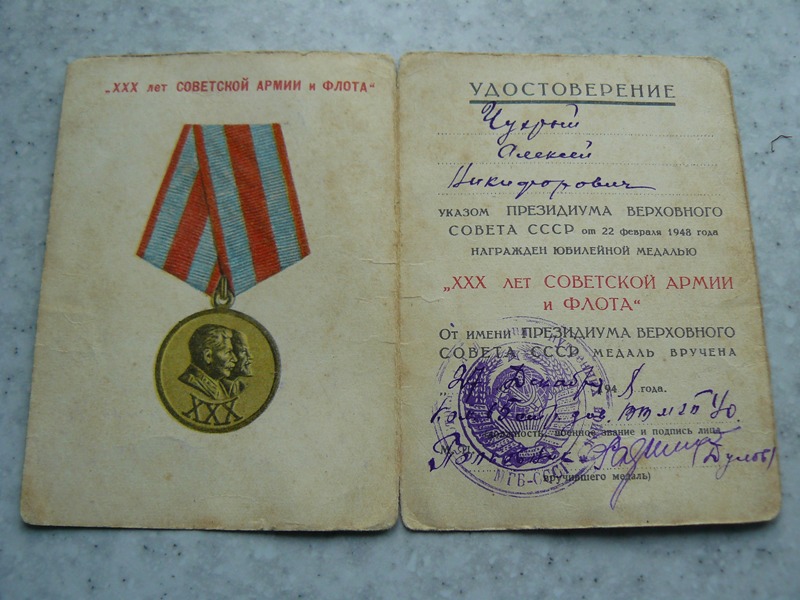 „XXX лет СОВЕТСКОЙ АРМИИ и ФЛОТА“
XXX
УДОСТОВЕРЕНИЕ
Чухрый
Алексей
Никифорович
указом ПРЕЗИДИУМА ВЕРХОВНОГО
СОВЕТА СССР от 22 февраля 1948 года
НАГРАЖДЕН ЮБИЛЕЙНОЙ МЕДАЛЬЮ
„XXX ЛЕТ СОВЕТСКОЙ АРМИИ
и ФЛОТА“
От имени ПРЕЗИДИУМА ВЕРХОВНОГО
СОВЕТА СССР МЕДАЛЬ ВРУЧЕНА
Декабря 1948 года.
должность, военное звание и подпись лица,
М. П.
(Дулов)
вручившего медаль)
МГБ-СССР